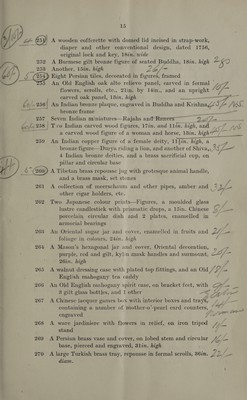 15
251 A wooden coffrette with domed lid incised in strap-work,
diaper and other conventional design, dated 1756,
original lock and key, 14in. wide
252 A Burmese gilt bronze figure of seated Buddha, 18in. high
253 Another, 13in. high
254 Eight Persian tiles, decorated in figures, framed
255 An Old English oak alto relievo panel, carved in formal
flowers, scrolls, etc., 21in. by 14in., and an upright
carved oak panel, 13in. high
256 An Indian bronze plaque, engraved in Buddha and Krishna,
bronze frame
257 Seven Indian miniatures—Rajahs and Ranees
258 Two Indian carved wood figures, 17in. and 11in. high, and
a carved wood figure of a woman and horse, 13in. high
259 An Indian copper figure of a female deity, 11½in. high, a
bronze figure—Durga riding a lion, and another of Shiva,
Indian bronze deities, and a brass sacrificial cup, on
pillar and circular base
260 A Tibetan brass repousse jug with grotesque animal handle,
and a brass mask, set stones
261 A collection of meerschaum and other pipes, amber and
other cigar holders, etc.
262 Two Japanese colour prints—Figures, a moulded glass
lustre candlestick with prismatic drops, a 15in. Chinese
porcelain circular dish and 2 plates, enamelled in
armorial bearings
263 An Oriental sugar jar and cover, enamelled in fruits and
foliage in colours, 24in. high
264 A Mason's hexagonal jar and cover, Oriental decoration,
purple, red and gilt, kylin mask handles and surmount,
26in. high
265 A walnut dressing case with plated top fittings, and an Old
English mahogany tea caddy
266 An Old English mahogany spirit case, on bracket feet, with
5 gilt glass bottles, and 1 other
267 A Chinese lacquer games box with interior boxes and trays,
containing a number of mother-o'-pearl card counters,
engraved
268 A ware jardiniere with flowers in relief, on iron tripod
stand
269 A Persian brass vase and cover, on lobed stem and circular
base, pierced and engraved, 31in. high
270 A large Turkish brass tray, repousse in formal scrolls, 36in.
diam.